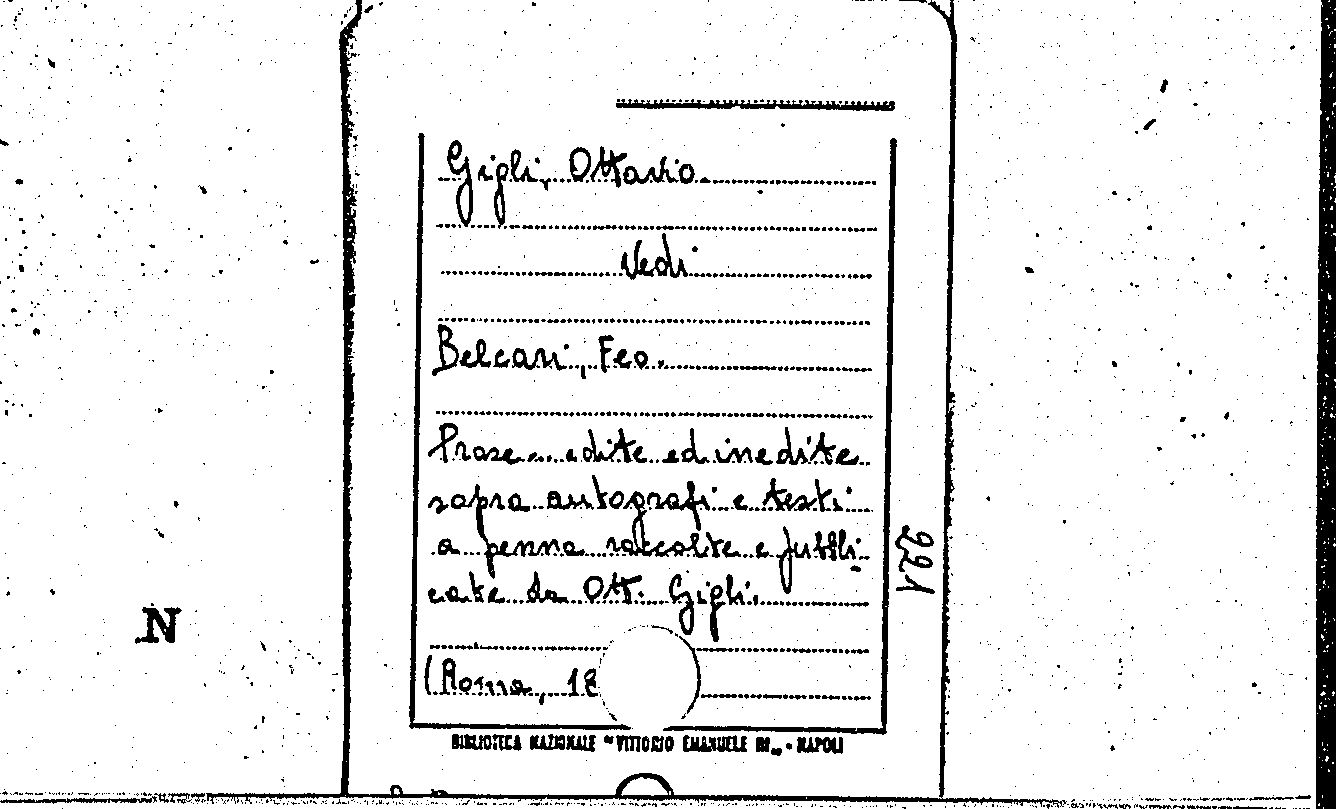 Gigli, Ottavio.
Vedi
Belcari, Feo.
Prose edite ed inedite
sopra autografi e testi
a penna raccolte e pubbli-
cate da Ott. Gigli.
(Roma, 18
221
N
BIBLIOTECA NAZIONALE "VITTORIO EMANUELE III" - NAPOLI